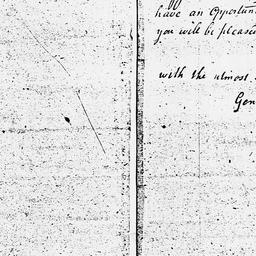 have an Opportun
you will be pleased
with the utmost
Gen